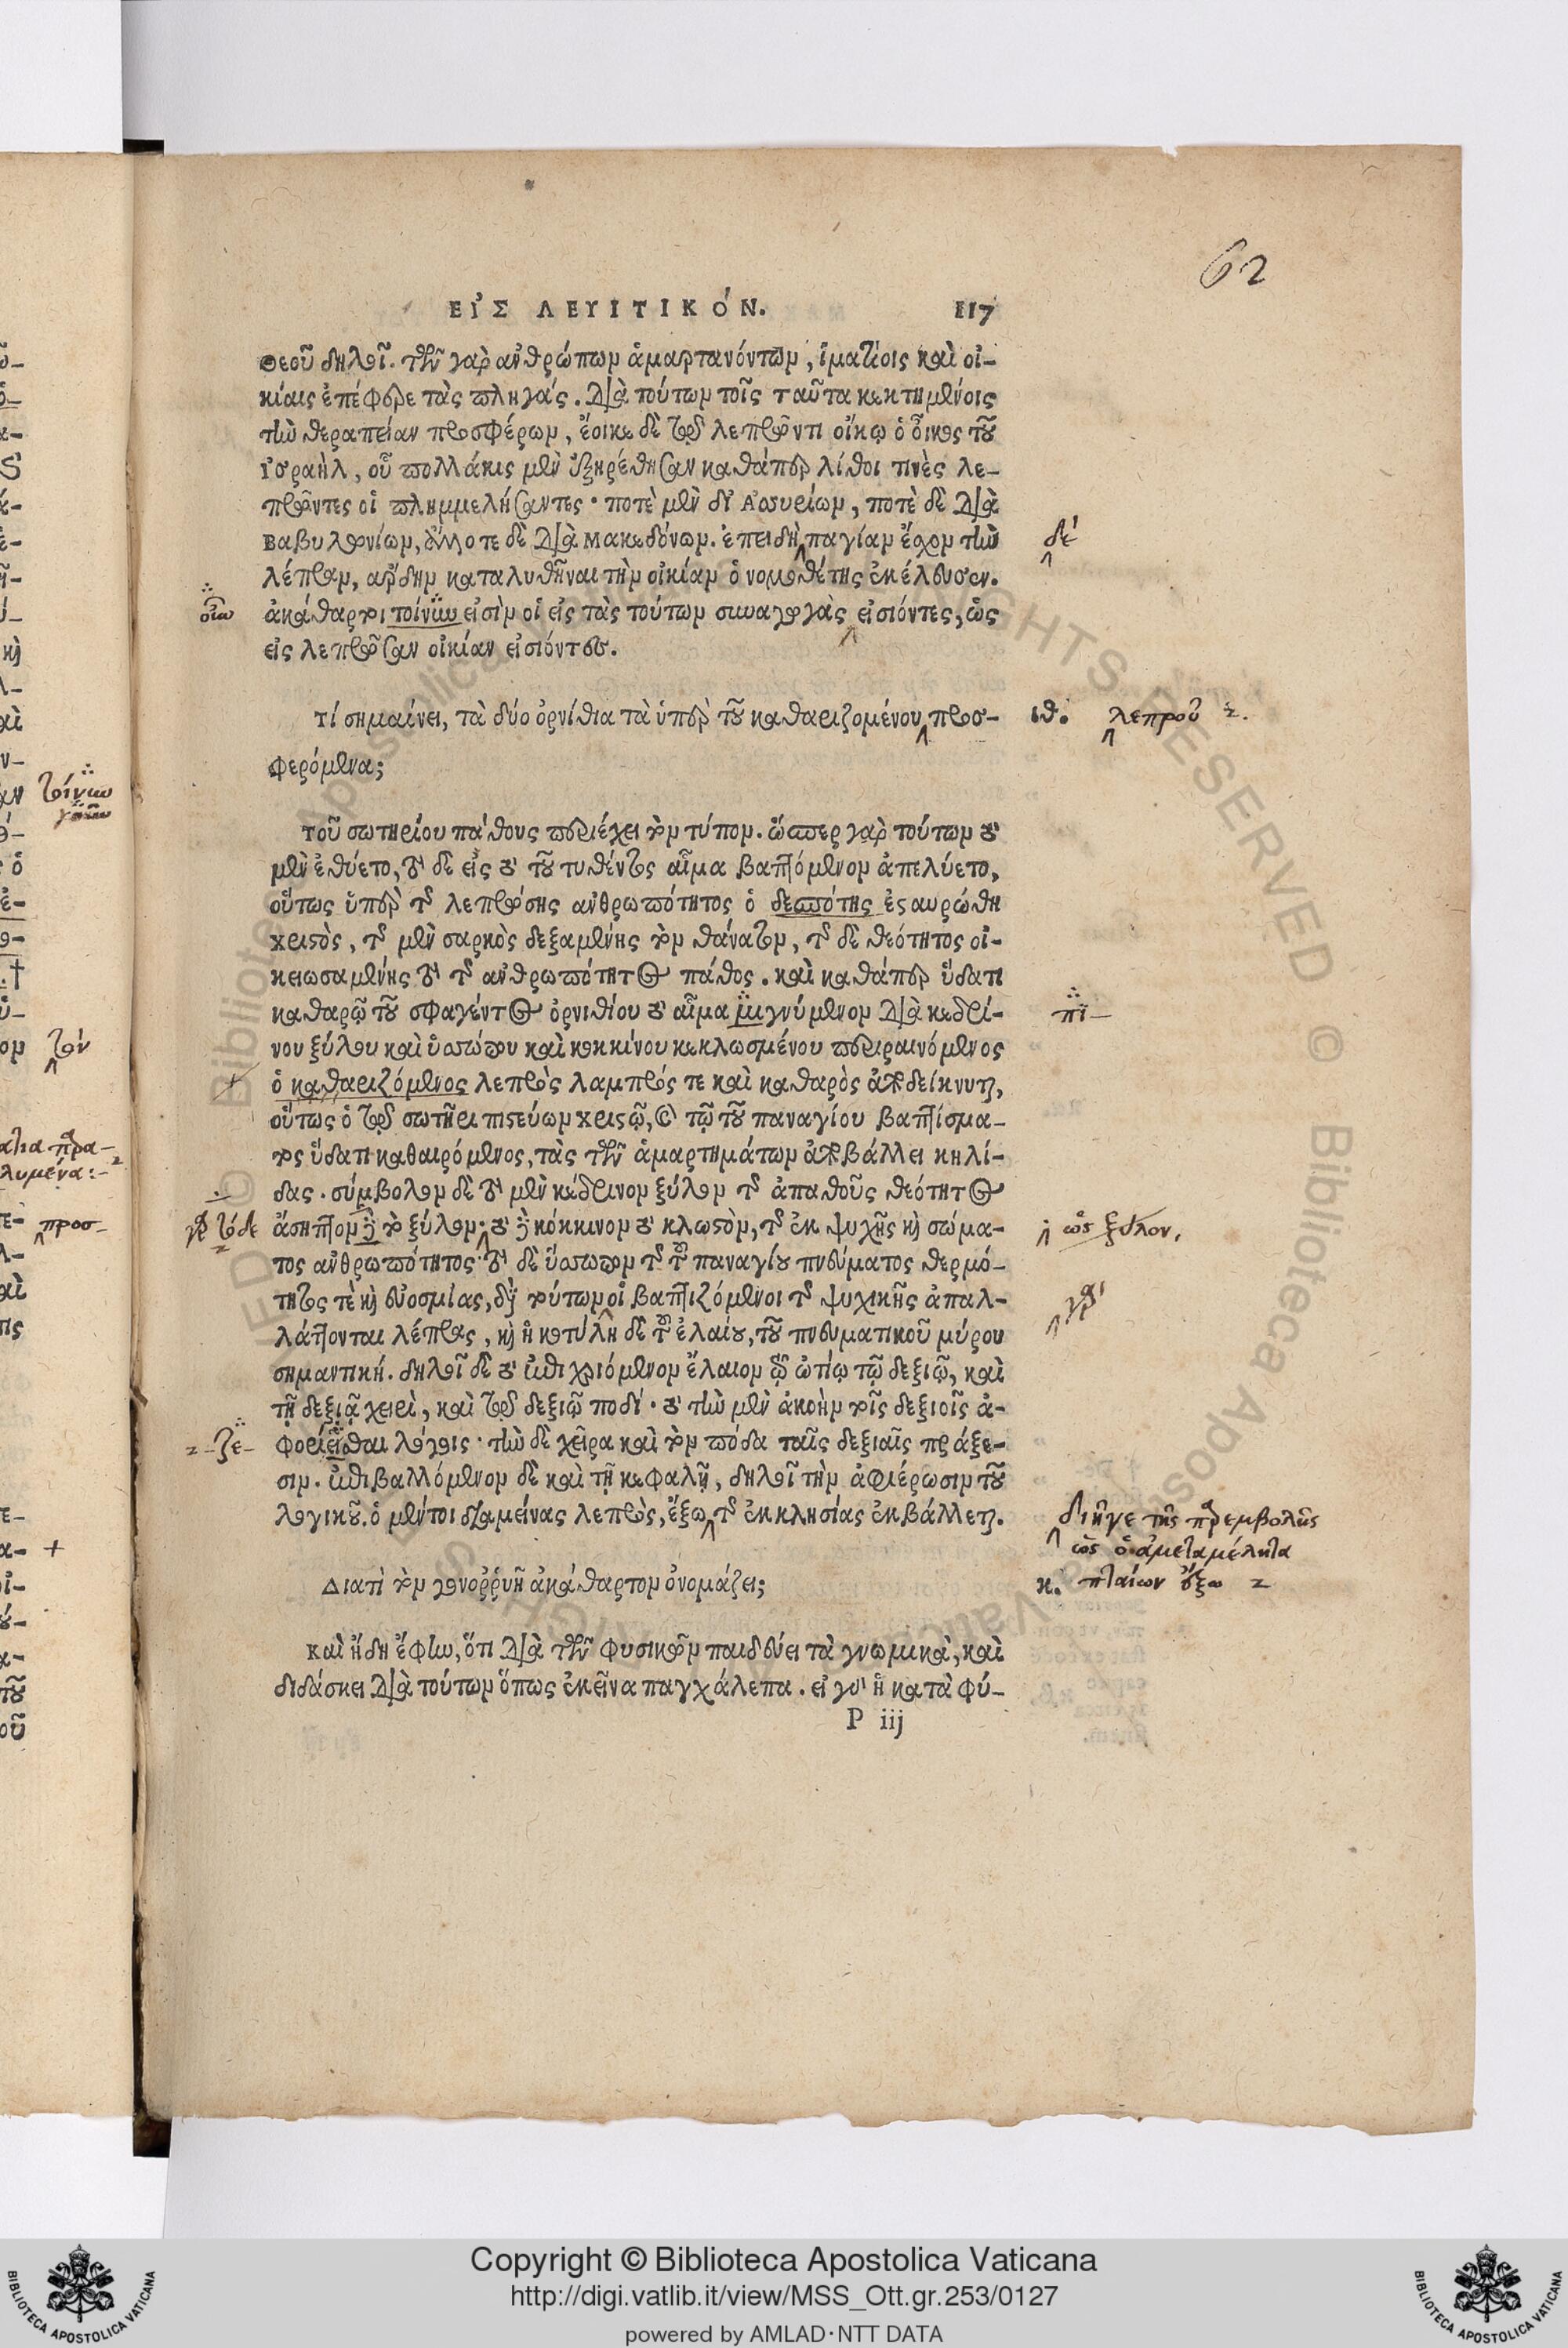 62
ΕἸΣ ΛΕΥΙΤΙΚΌΝ. 117
Θεοῦ δηλοῖ. τῶν γὰρ ἀνθρώπων ἁμαρτανόντων, ἱματίοις καὶ οἰ-
κίαις ἐπέφερε τὰς πληγάς. διὰ τούτων τοῖς ταῦτα κεκτημένοις
τὴν θεραπείαν προσφέρων, ἔοικε δὲ τῷ λεπρῶντι οἴκῳ ὁ οἶκος τοῦ
Ἰσραὴλ, οὗ πολλάκις μὲν ἐξῃρέθησαν καθάπερ λίθοι τινὲς λε-
πρῶντες οἱ πλημμελήσαντες· ποτὲ μὲν δι' Ἀσσυρίων, ποτὲ δὲ διὰ
Βαβυλωνίων, ἄλλοτε δὲ διὰ Μακεδόνων. ἐπειδὴ παγίαν ἔχον τὴν
δέ
λέπραν, ἄρδην καταλυθῆναι τὴν οἰκίαν ὁ νομοθέτης ἐκέλευσεν.
ἀκάθαρτοι τοίνυν εἰσὶν οἱ εἰς τὰς τούτων συναγωγὰς εἰσιόντες, ὡς
εἰς λεπρῶσαν οἰκίαν εἰσιόντες.
Τί σημαίνει, τὰ δύο ὀρνίθια τὰ ὑπὲρ τοῦ καθαριζομένου προσ-
ιθ. λεπροῦ
φερόμενα;
Τοῦ σωτηρίου πάθους περιέχει τὸν τύπον. ὥσπερ γὰρ τούτων τὸ
μὲν ἐθύετο, τὸ δὲ εἰς τὸ τοῦ τυθέντος αἷμα βαπτόμενον ἀπελύετο,
οὕτως ὑπὲρ τῆς λεπρώσης ἀνθρωπότητος ὁ δεσπότης ἐσταυρώθη
χριστὸς, τῆς μὲν σαρκὸς δεξαμένης τὸν θάνατον, τῆς δὲ θεότητος οἰ-
κειωσαμένης τὸ τῆς ἀνθρωπότητος πάθος. καὶ καθάπερ ὕδατι
καθαρῷ τοῦ σφαγέντος ὀρνιθίου τὸ αἷμα μιγνύμενον διὰ κεδρί-
πι-
νου ξύλου καὶ ὑσσώπου καὶ κοκκίνου κεκλωσμένου περιραινόμενος
ὁ καθαριζόμενος λεπρὸς λαμπρός τε καὶ καθαρὸς ἀποδείκνυται,
οὕτως ὁ τῷ σωτῆρι πιστεύων χριστῷ, καὶ τῷ τοῦ παναγίου βαπτίσμα-
τος ὕδατι καθαιρόμενος, τὰς τῶν ἁμαρτημάτων ἀποβάλλει κηλί-
δας. σύμβολον δὲ τὸ μὲν κέδρινον ξύλον τῆς ἀπαθοῦς θεότητος
ἄσηπτον καὶ τὸ ξύλον· τὸ καὶ κόκκινον τὸ κλωστὸν, τῆς ἐκ ψυχῆς καὶ σώμα-
ὡς ξύλον,
τος ἀνθρωπότητος· τὸ δὲ ὕσσωπον τῆς τοῦ παναγίου πνεύματος θερμό-
τητος τὲ καὶ εὐοσμίας, διὰ τούτων οἱ βαπτιζόμενοι τῆς ψυχικῆς ἀπαλ-
λάττονται λέπρας, καὶ ἡ κοτύλη δὲ τοῦ ἐλαίου, τοῦ πνευματικοῦ μύρου
σημαντική. δηλοῖ δὲ τὸ ἐπιχριόμενον ἔλαιον τῷ ὠτίῳ τῷ δεξιῷ, καὶ
τῇ δεξιᾷ χειρὶ, καὶ τῷ δεξιῷ ποδί· τὸ τὴν μὲν ἀκοὴν τοῖς δεξιοῖς ἀ-
φοριεῖσθαι λόγοις· τὴν δὲ χεῖρα καὶ τὸν πόδα ταῖς δεξιαῖς πράξε-
σιν. ἐπιβαλλόμενον δὲ καὶ τῇ κεφαλῇ, δηλοῖ τὴν ἀφιέρωσιν τοῦ
λογικοῦ. ὁ μέντοι διαμείνας λεπρὸς, ἔξω τῆς ἐκκλησίας ἐκβάλλεται.
διῆγε τῆς παρεμβολῆς
ὡς ὁ ἀμεταμέλητα
πταίων ἔξω
Διατὶ τὸν γονοῤῥυῆ ἀκάθαρτον ὀνομάζει;
κ.
Καὶ ἤδη ἔφην, ὅτι διὰ τῶν φυσικῶν παιδεύει τὰ γνωμικὰ, καὶ
διδάσκει διὰ τούτων ὅπως ἐκεῖνα παγχάλεπα. εἰ γὰρ ἡ κατὰ φύ-
P iij
Copyright © Biblioteca Apostolica Vaticana
http://digi.vatlib.it/view/MSS_Ott.gr.253/0127
powered by AMLAD·NTT DATA